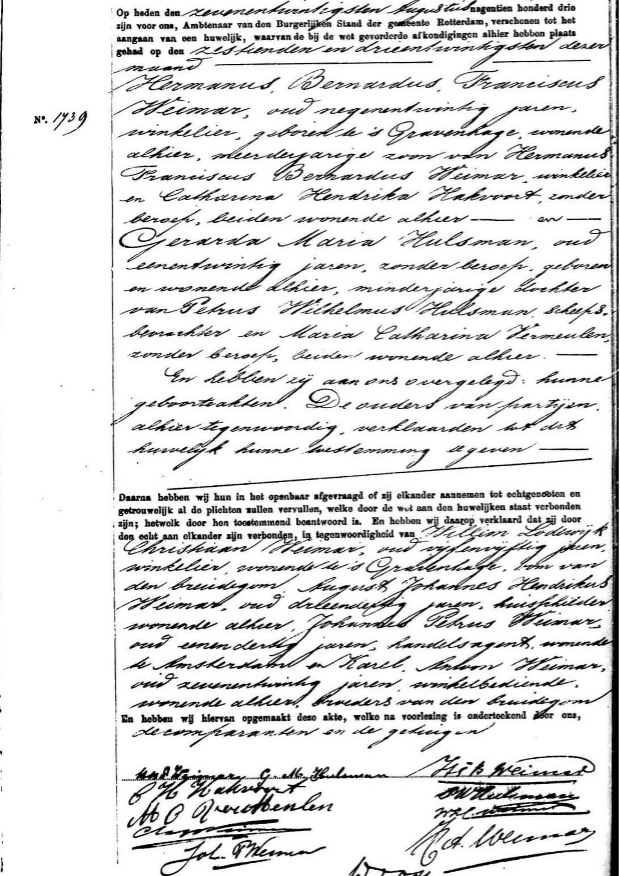 Op heden den zevenentwintigsten Augustus negentien honderd drie
zijn voor ons, Ambtenaar van den Burgerlijken Stand der gemeente Rotterdam, verschenen tot het
aangaan van een huwelijk, waarvan de bij de wet gevorderde afkondigingen alhier hebben plaats
gehad op den zestienden en drieentwintigsten dezer
maand
Hermanus, Bernardus, Franciscus
No. 1739
Weimar, oud negenentwintig jaren,
winkelier, geboren te 's Gravenhage, wonende
alhier, meerderjarige zoon van Hermanus
Franciscus Bernardus Weimar, winkelier
en Catharina Hendrika Hakvoort, zonder
beroep, beiden wonende alhier — en —
Gerarda Maria Hulsman, oud
eenentwintig jaren, zonder beroep, geboren
en wonende alhier, minderjarige dochter
van Petrus Wilhelmus Hulsman, scheeps-
bevrachter en Maria Catharina Vermeulen,
zonder beroep, beiden wonende alhier. —
En hebben zij aan ons overgelegd: hunne
geboorteakten. De ouders van partijen,
alhier tegenwoordig, verklaarden tot dit
huwelijk hunne toestemming te geven —
Daarna hebben wij hun in het openbaar afgevraagd of zij elkander aannemen tot echtgenooten en
getrouwelijk al de plichten zullen vervullen, welke door de wet aan den huwelijken staat verbonden
zijn; hetwelk door hen toestemmend beantwoord is. En hebben wij daarop verklaard dat zij door
den echt aan elkander zijn verbonden, in tegenwoordigheid van Willem Lodewijk
Christiaan Weimar, oud vijfenvijftig jaren,
winkelier, wonende te 's Gravenhage, oom van
den bruidegom, August Johannes Hendrikus
Weimar, oud drieendertig jaren, huisschilder
wonende alhier, Johannes Petrus Weimar,
oud eenendertig jaren, handelsagent, wonende
te Amsterdam en Karel, Anton Weimar,
oud zevenentwintig jaren, winkelbediende,
wonende alhier, broeders van den bruidegom
En hebben wij hiervan opgemaakt deze akte, welke na voorlezing is onderteekend door ons,
de comparanten en de getuigen
G. M. Hulsman
Weimar
C H Hakvoort
PW Hulsman
M C Vermeulen
Joh. P Weimar
K. A. Weimar